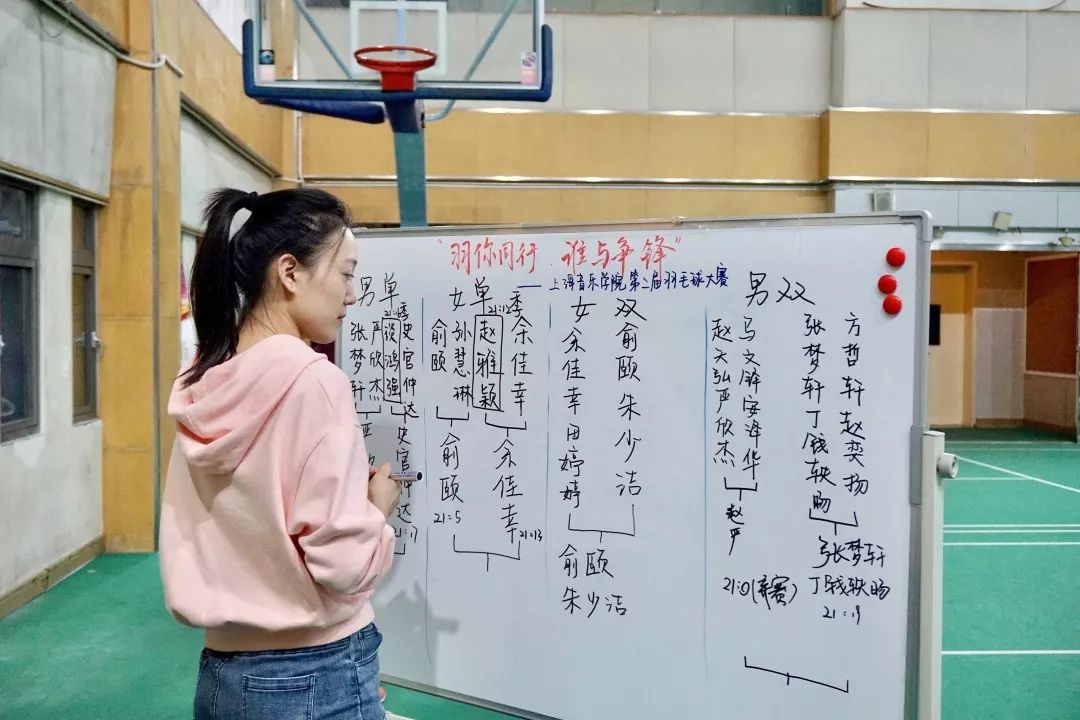 "羽你同行 谁与争锋"
——上海音乐学院第二届羽毛球大赛
男单
21:
季
张梦轩
严欣杰
谈鸿强
史官仲达
严
史官仲达
女单
21:12
季
俞颐
孙慧琳
赵雅颖
余佳幸
俞颐
21:5
余佳幸
21:13
女双
余佳幸田婷婷
俞颐朱少洁
俞颐
朱少洁
男双
赵天弘严欣杰
马文锋安泽华
张梦轩丁钱轶旸
方哲轩赵奕扬
赵严
21:0(弃赛)
张梦轩
丁钱轶旸
21:19